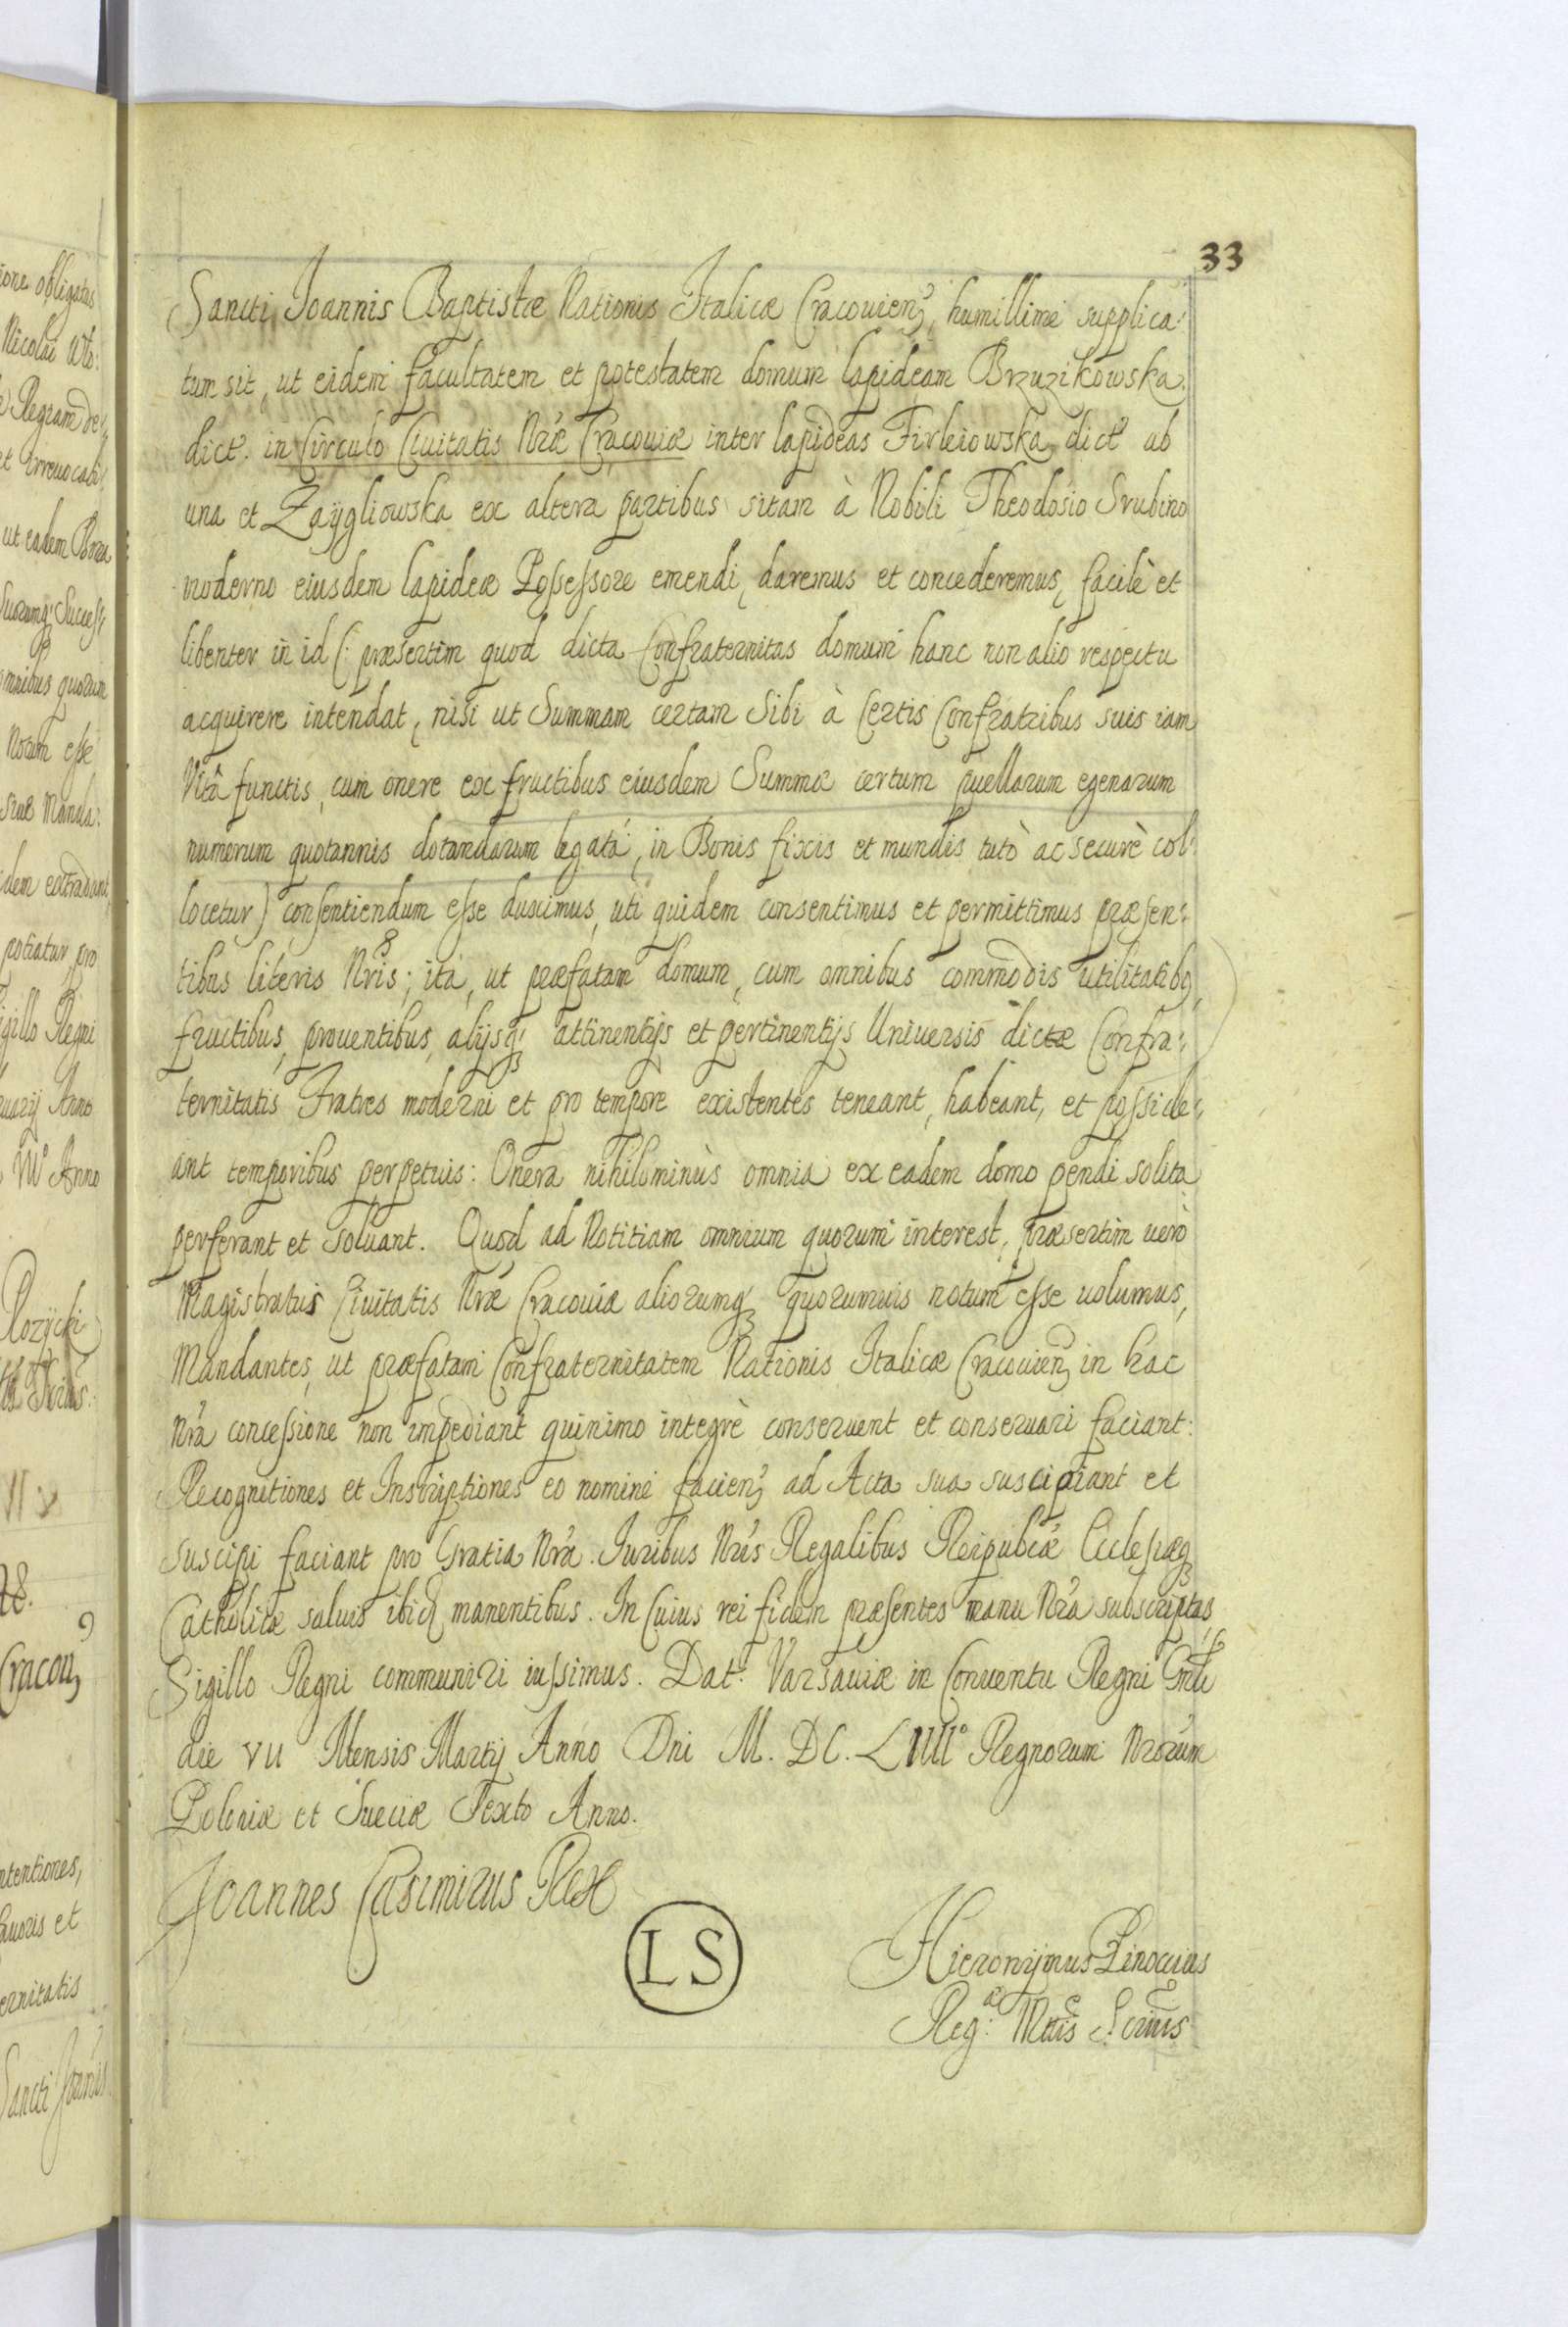 33
Sancti Joannis Baptistæ Nationis Italicæ Cracovien, humillimé supplica:
tum sit, ut eidem facultatem et potestatem domum lapideam Bruzikowska
dict. in Circulo Civitatis Nræ Cracoviæ inter lapideas Firleiowska dict ab
una et Zaÿgliowska ex altera partibus sitam à Nobili Theodosio Srubino
moderno eiusdem lapideæ Possessore emendi, daremus et concederemus, facilè et
libenter in id (: præsertim quod dicta Confraternitas domum hanc non alio respectu
acquirere intendat, nisi ut Summam certam Sibi à Certis Confratribus suis iam
Vitâ functis, cum onere ex fructibus eiusdem Summæ certum puellarum egenarum
numerum quotannis dotandarum legatá, in Bonis fixis et mundis tutò ac securè col:
locetur) consentiendum esse duximus, uti quidem consentimus et permittimus præsen:
tibus literis Nris; ita, ut præfatam domum, cum omnibus commodis utilitatibq,
fructibus, proventibus, alijsq; attinentijs et pertinentijs Universis dictæ Confra:
ternitatis Fratres moderni et pro tempore existentes teneant, habeant, et posside:
ant temporibus perpetuis: Onera nihilominùs omnia ex eadem domo pendi solita
perferant et solvant. Quod ad Notitiam omnium quorum interest, præsertim verò
Magistratus Civitatis Nræ Cracoviæ aliorumq; quorumvis notum esse volumus,
Mandantes, ut præfatam Confraternitatem Nationis Italicæ Cracovien in hac
Nrá concessione non impediant quinimo integrè conservent et conservari faciant:
Recognitiones et Inscriptiones eo nomine facien ad Acta sua suscipiant et
suscipi faciant pro Gratia Nrá. Iuribus Nris Regalibus Reipublcæ Ecclesiæq
Catholicæ salvis ibid manentibus. In Cuius rei fidem præsentes manu Nrá subscriptas,
Sigillo Regni communiri iussimus. Dat: Varsaviæ in Conventu Regni Gnli
die VII Mensis Martij Anno Dni M. DC. LIIII° Regnorum Nrorum
Poloniæ et Sueciæ Sexto Anno.
Joannes Casimirus Rex
LS
Hieronÿmus Pinoccius
Reg: Mttis Scrius